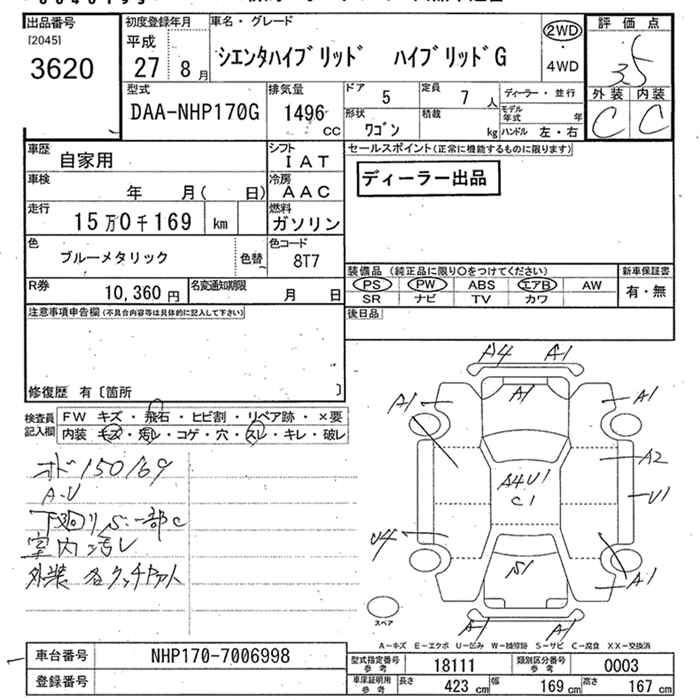 出品番号
[2045]
3620
初度登録年月
平成
27 8月
車名・グレード
シエンタハイブリッド ハイブリッドG
2WD
・
4WD
評価点
3.5
外装 内装
C C
型式
DAA-NHP170G
排気量
1496
CC
ドア
5
定員
7 人
形状
ワゴン
積載
kg
ディーラー・並行
モデル年式 年
ハンドル 左・右
車歴
自家用
シフト
IAT
車検
年 月( 日)
冷房
AAC
走行
15万0千169 km
燃料
ガソリン
色
ブルーメタリック
色替
色コード
8T7
R券
10,360 円
名変通知期限
月 日
セールスポイント(正常に機能するものに限ります)
ディーラー出品
装備品 (純正品に限り○をつけてください)
PS PW ABS エアB AW
SR ナビ TV カワ
新車保証書
有・無
後日品
注意事項申告欄(不具合内容等は具体的に記入して下さい)
修復歴 有〔箇所 〕
検査員記入欄
FW キズ・飛石・ヒビ割・リペア跡・×要
内装 キズ・汚レ・コゲ・穴・スレ・キレ・破レ
オド150169
A・U
下廻りS・一部C
室内汚レ
外装 各タッチアト
A4 A1
A1 A1 A1
A4U1
C1
A2
U1
U4
S1
A1
A1 A1
スペア
A-キズ E-エクボ U-凹み W-補修跡 S-サビ C-腐食 XX-交換済
車台番号
NHP170-7006998
登録番号
型式指定番号
参考
18111
類別区分番号
参考
0003
車庫証明用
参考
長さ
423 cm
幅
169 cm
高さ
167 cm